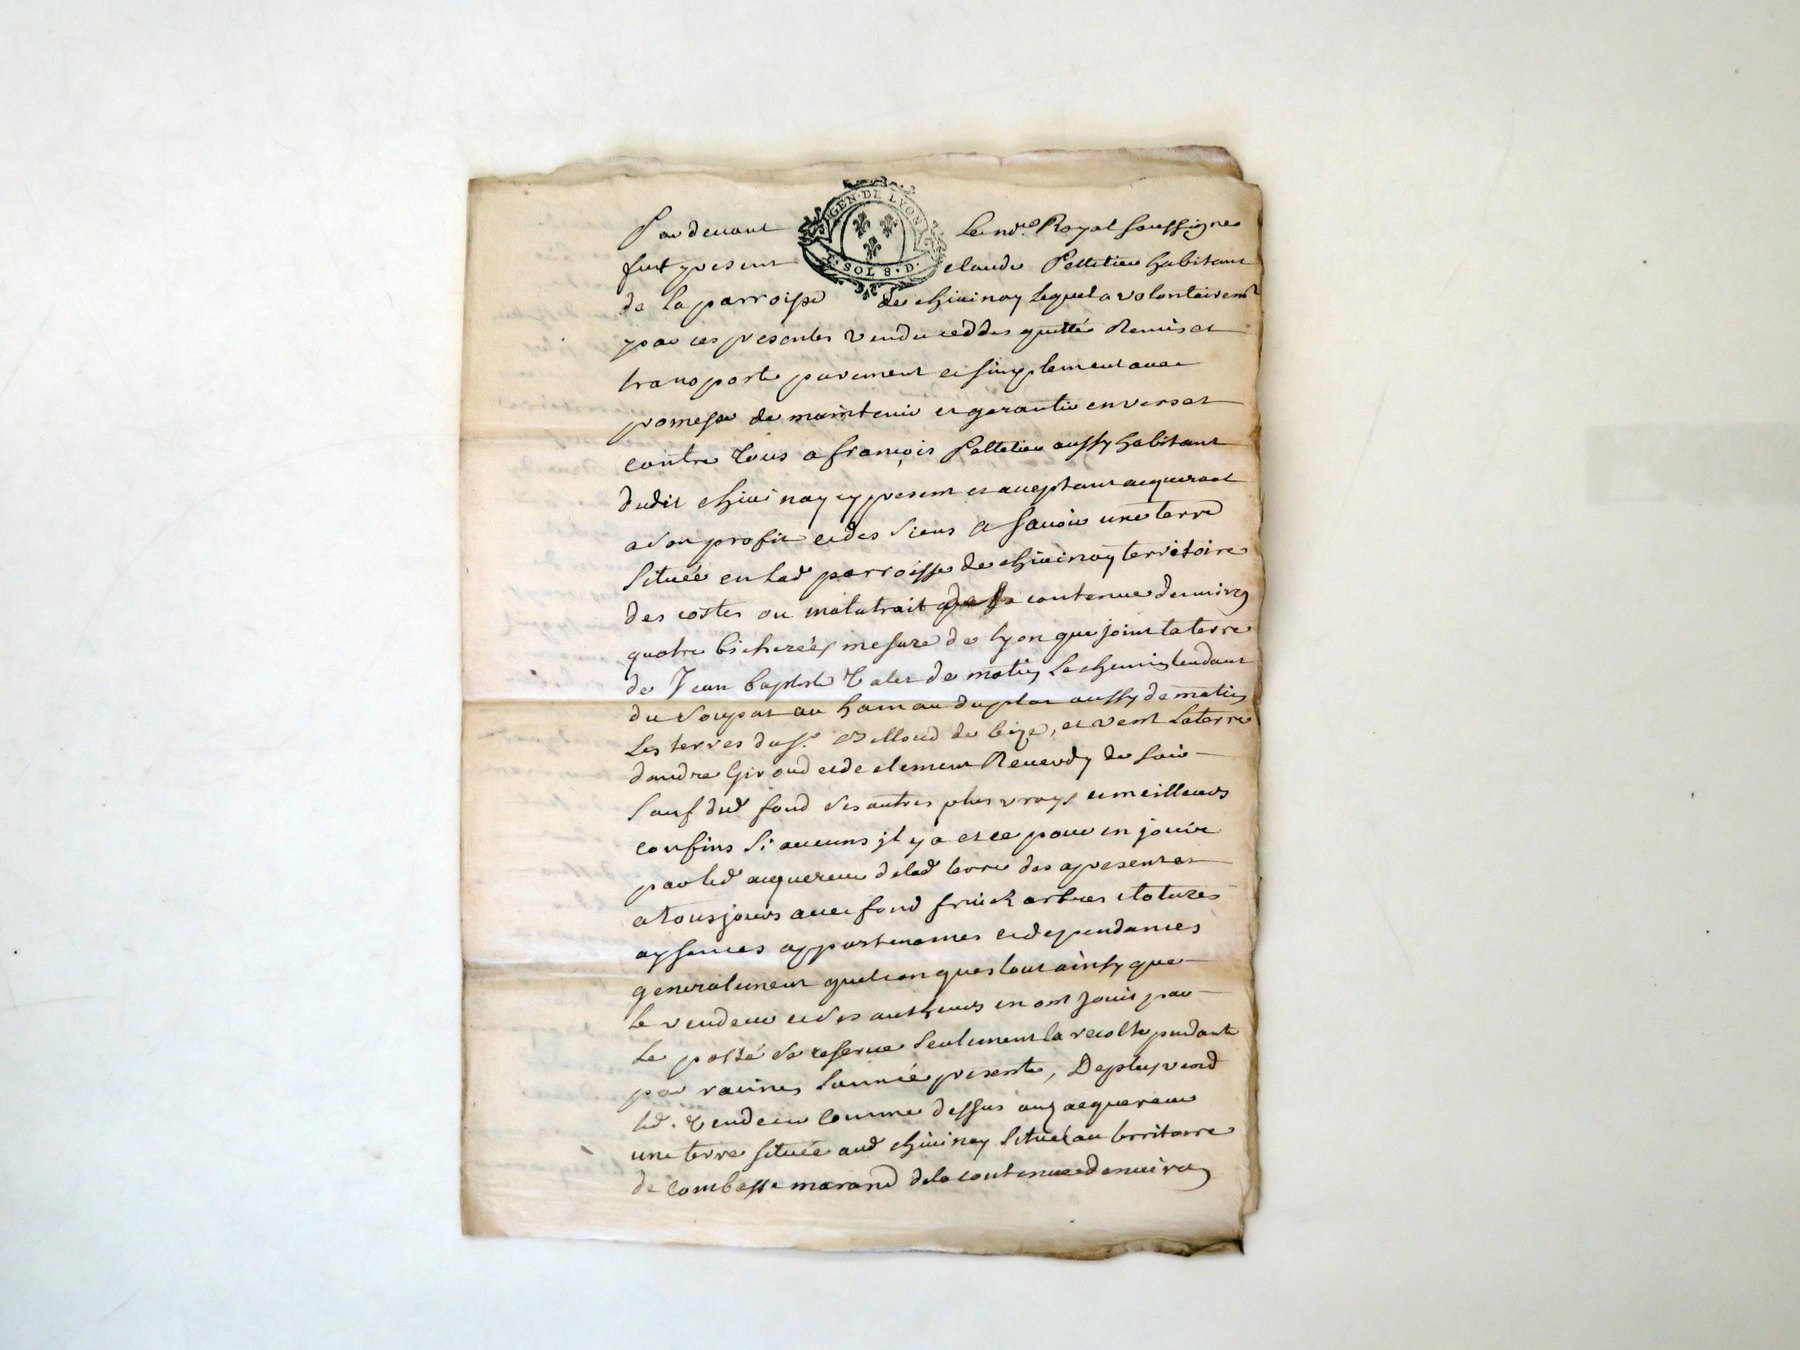 GEN·DE LYON
SOL 8·D·
Pardevant Le nre Royal soussigné
fut present claude Pelletier habitant
de la parroisse de chivinay lequel a volontairemt
par ces presentes vendu ceddé quitté Remis et
transporté purement et simplement avec
promesse de maintenir et garantir envers et
contre tous a françois Pelletier aussy habitant
dudit chivinay cy present et aceptant acquerant
a son profit et des siens A savoir une terre
située en lad parroisse de chivinay territoire
des costes ou molatrait contenue denviron
quatre bicherées mesure de lyon que joint la terre
de Jean baptiste de matin Le chemin tendant
du au hameau du plat aussy de matin
Les terres du Sr de bize, et vent La terre
dandré Giroud et de clement Reverdy de soir
sauf dud fond ses autres plus vrays et meilleurs
confins si aucuns il y a et ce pour en jouir
par led acquereur de lad terre des a present et
a tousjours avec fond fruick arbres
aysances appartenances et dependances
generalement quelconques tout ainsy que
le vendeur et ses autheurs en ont jouis par
le passé se reserve seulement la recolte pendante
par racines l'année presente, De plus vend
led. vendeur comme dessus aud acquereur
une terre située aud chivinay située au territoire
de combesse marand de la contenue denviron